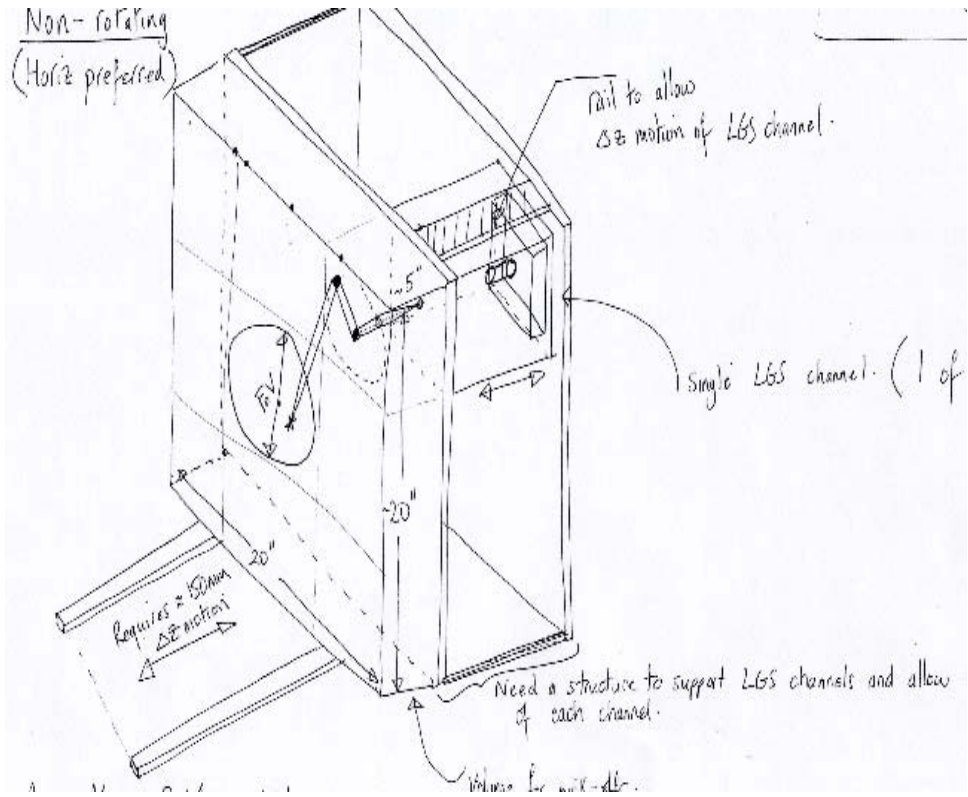 Non-rotating
(Horiz preferred)
rail to allow
Δz motion of LGS channel.
~5"
single LGS channel. (1 of
FoV
~20"
20"
Requires ≈ 150mm
ΔZ motion
Need a structure to support LGS channels and allow
of each channel.
Volume for pick-off.